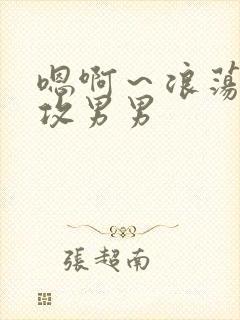 嗯啊～浪荡
攻男男
張超南